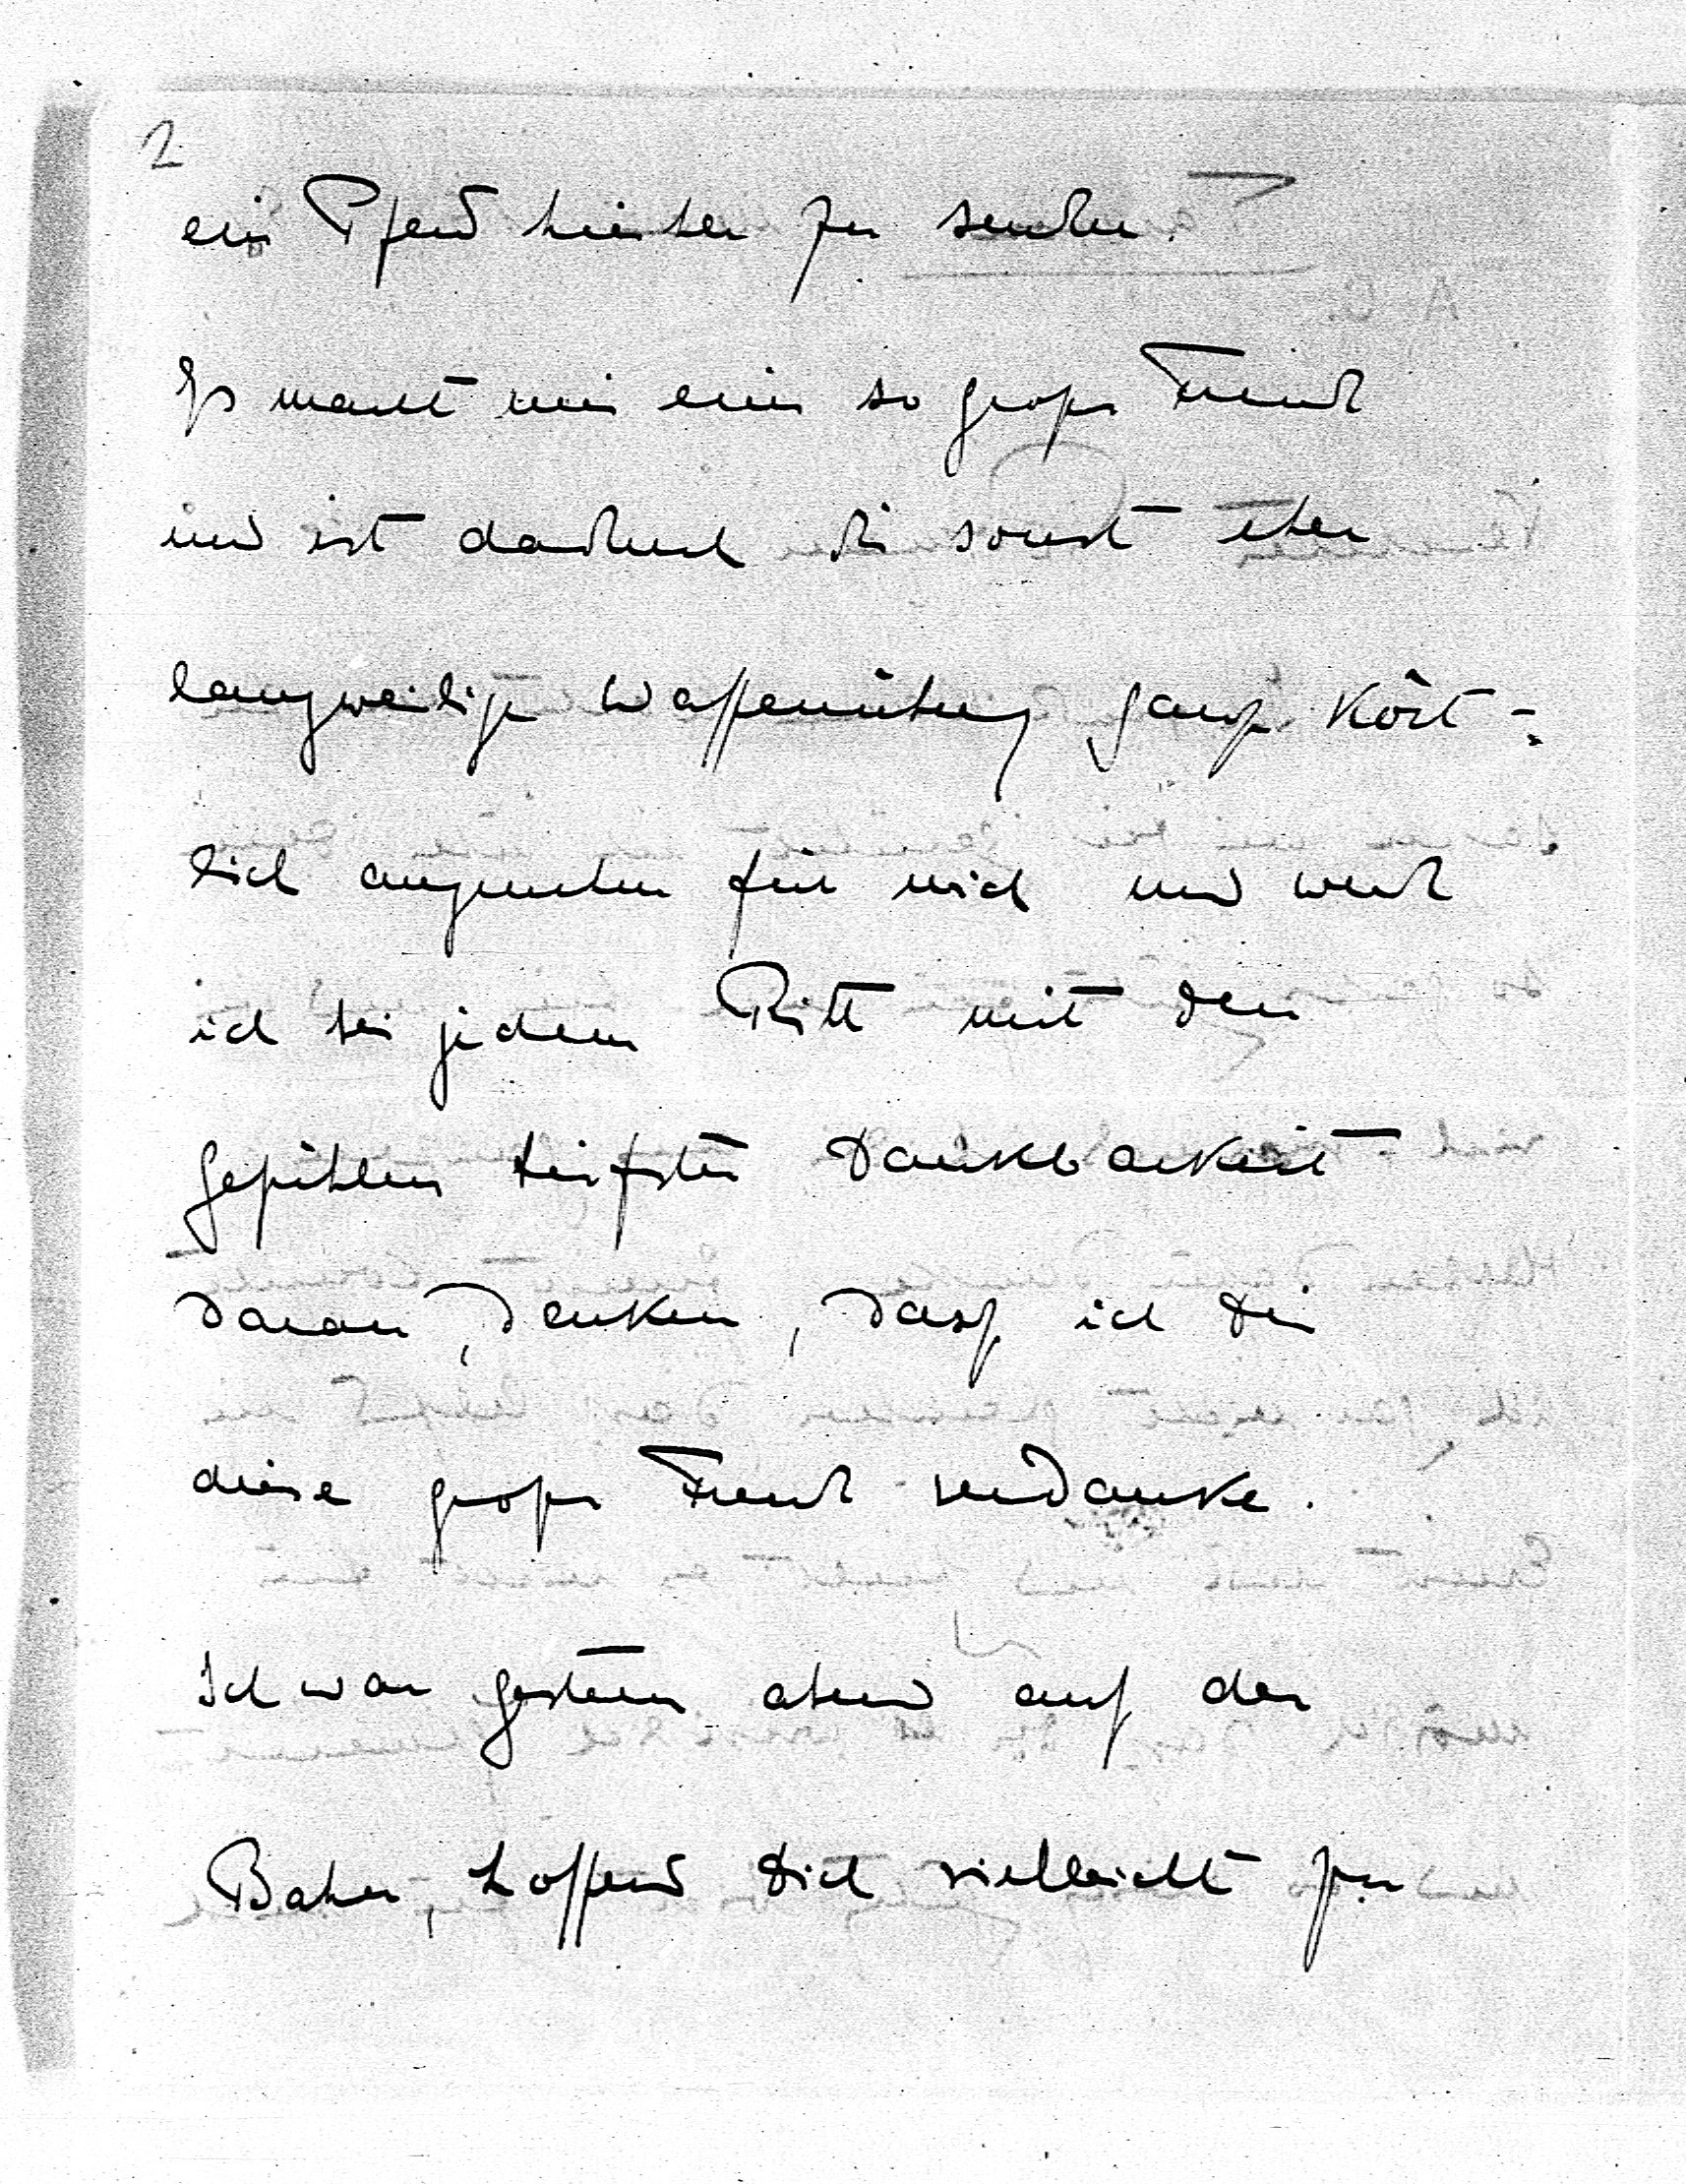 2
ein Pferd hierher zu senden.
Es macht mir eine so grosse Freude
und ist dadurch die sonst eher
langweilige Waffenübung ganz köst-
lich angenehm für mich und werde
ich bei jedem Ritt mit den
Gefühlen tiefster Dankbarkeit
daran denken, dass ich Dir
diese grosse Freude verdanke.
Ich war gestern abend auf der
Bahn, hoffend Dich vielleicht zu